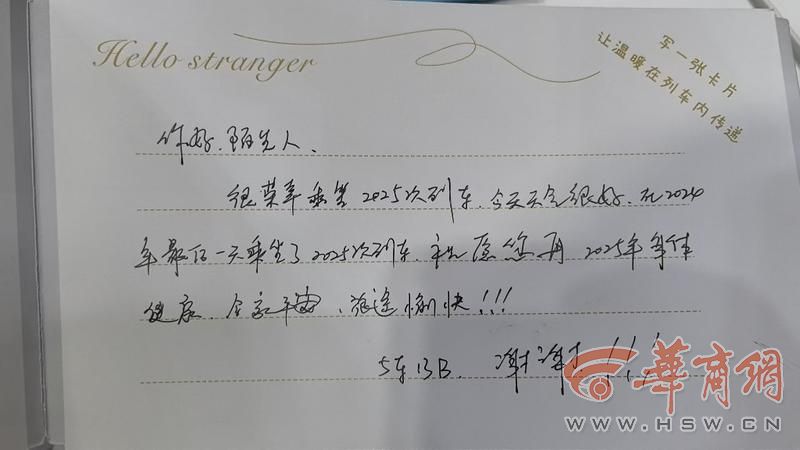 Hello stranger
写一张卡片
让温暖在列车内传递
你好,陌生人、
很荣幸乘坐2025次列车,今天天气很好,在2024
年最后一天乘坐了2025次列车,祝愿您再2025年身体
健康、全家平安、旅途愉快!!!
5车13B、谢谢!!!
華商網
WWW.HSW.CN